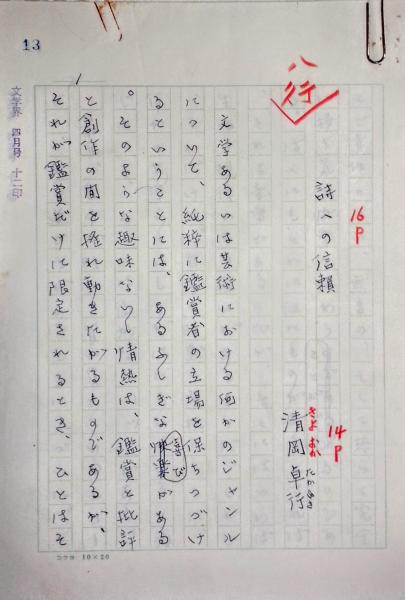 13
八行
16P
詩への信頼
14P
清岡卓行
きよおか たかゆき
文学あるいは芸術における何かのジャンル
について、純粋に鑑賞者の立場を保ちつづけ
るということには、あるふしぎな喜びがある
。そのような趣味ないし情熱は、鑑賞と批評
と創作の間を揺れ動きたがるものであるが、
それが鑑賞だけに限定されるとき、ひとはそ
文学界 四月号 十二印
コクヨ 10×20